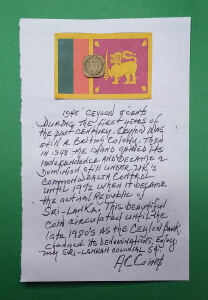 1945 CEYLON 2 CENTS
DURING THE FIRST YEARS OF
THE PAST CENTURY, CEYLON WAS
STILL A BRITISH COLONY. THEN
IN 1948 THE ISLAND GAINED ITS
INDEPENDENCE AND BECAME A
DOMINION STILL UNDER THE U.K.'S
COMMONWEALTH CONTROL
UNTIL 1972 WHEN IT BECAME
THE ACTUAL REPUBLIC OF
SRI-LANKA. THIS BEAUTIFUL
COIN CIRCULATED UNTIL THE
LATE 1980'S AS THE CEYLON BANK
CHANGED ITS DENOMINATIONS. ENJOY
MY SRI-LANKAN COLONIAL
AC Coins